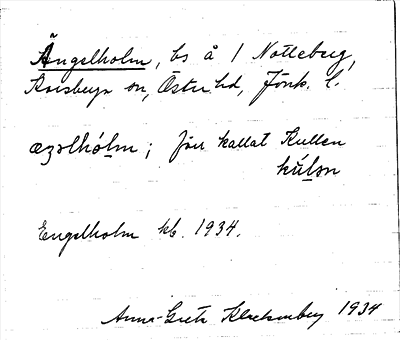 Ängelholm, bs å 1 Notteberg,
Korsberga sn, Östra hd, Jönk. l.
æŋəlhólm; förr kallat Kullen
kúlən
Engelholm kb. 1934.
Anna-Greta 1934